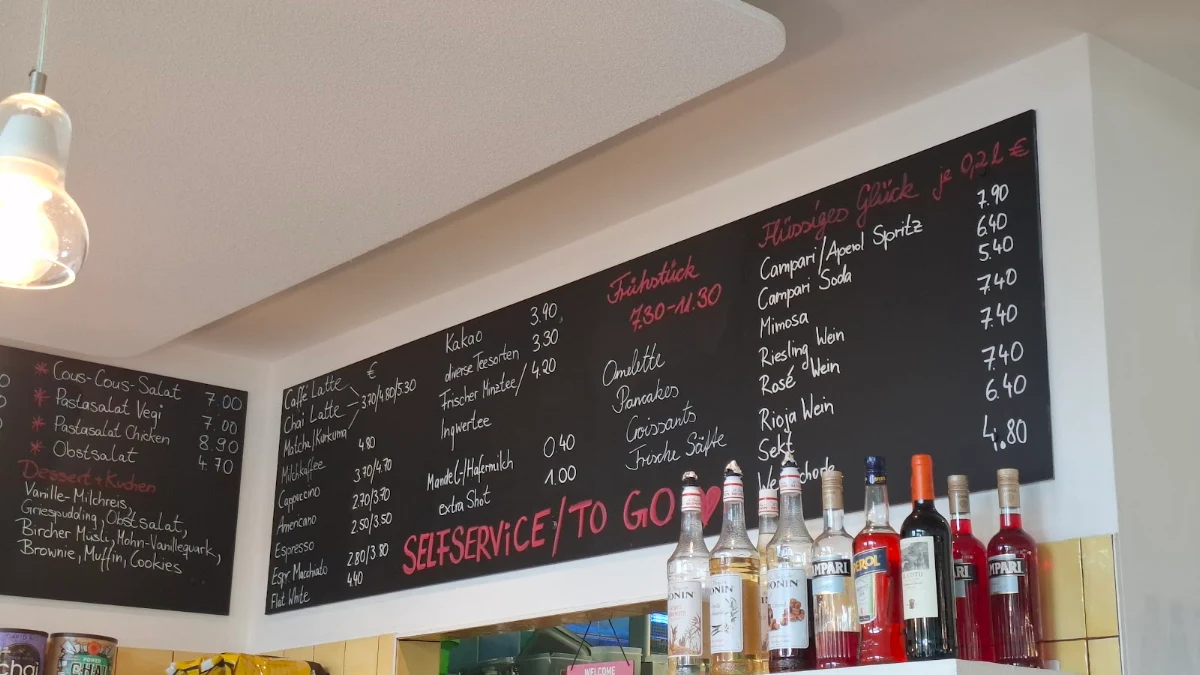 * Cous-Cous-Salat 7.00
* Pastasalat Vegi 7.00
* Pastasalat Chicken 8.90
* Obstsalat 4.70
Dessert + Kuchen
Vanille-Milchreis,
Griespudding, Obstsalat,
Bircher Müsli, Mohn-Vanillequark,
Brownie, Muffin, Cookies
€
Caffé Latte
Chai Latte 3.70/4.80/5.30
Matcha/Kurkuma
Milchkaffee 4.80
Cappuccino 3.70/4.70
Americano 2.70/3.70
Espresso 2.50/3.50
Espr. Macchiato 2.80/3.80
Flat White 4.40
Kakao 3.90
diverse Teesorten 3.30
Frischer Minztee/ 4.20
Ingwertee
Mandel-/Hafermilch 0.40
extra Shot 1.00
SELFSERVICE/TO GO
Frühstück
7.30-11.30
Omelette
Pancakes
Croissants
Frische Säfte
Flüssiges Glück je 0,2l €
Campari/Aperol Spritz 7.90
Campari Soda 6.40
Mimosa 5.40
Riesling Wein 7.40
Rosé Wein 7.40
Rioja Wein 7.40
Sekt 6.40
4.80
MONIN
MPARI
PEROL
MPARI
chai
CHAI
WELCOME